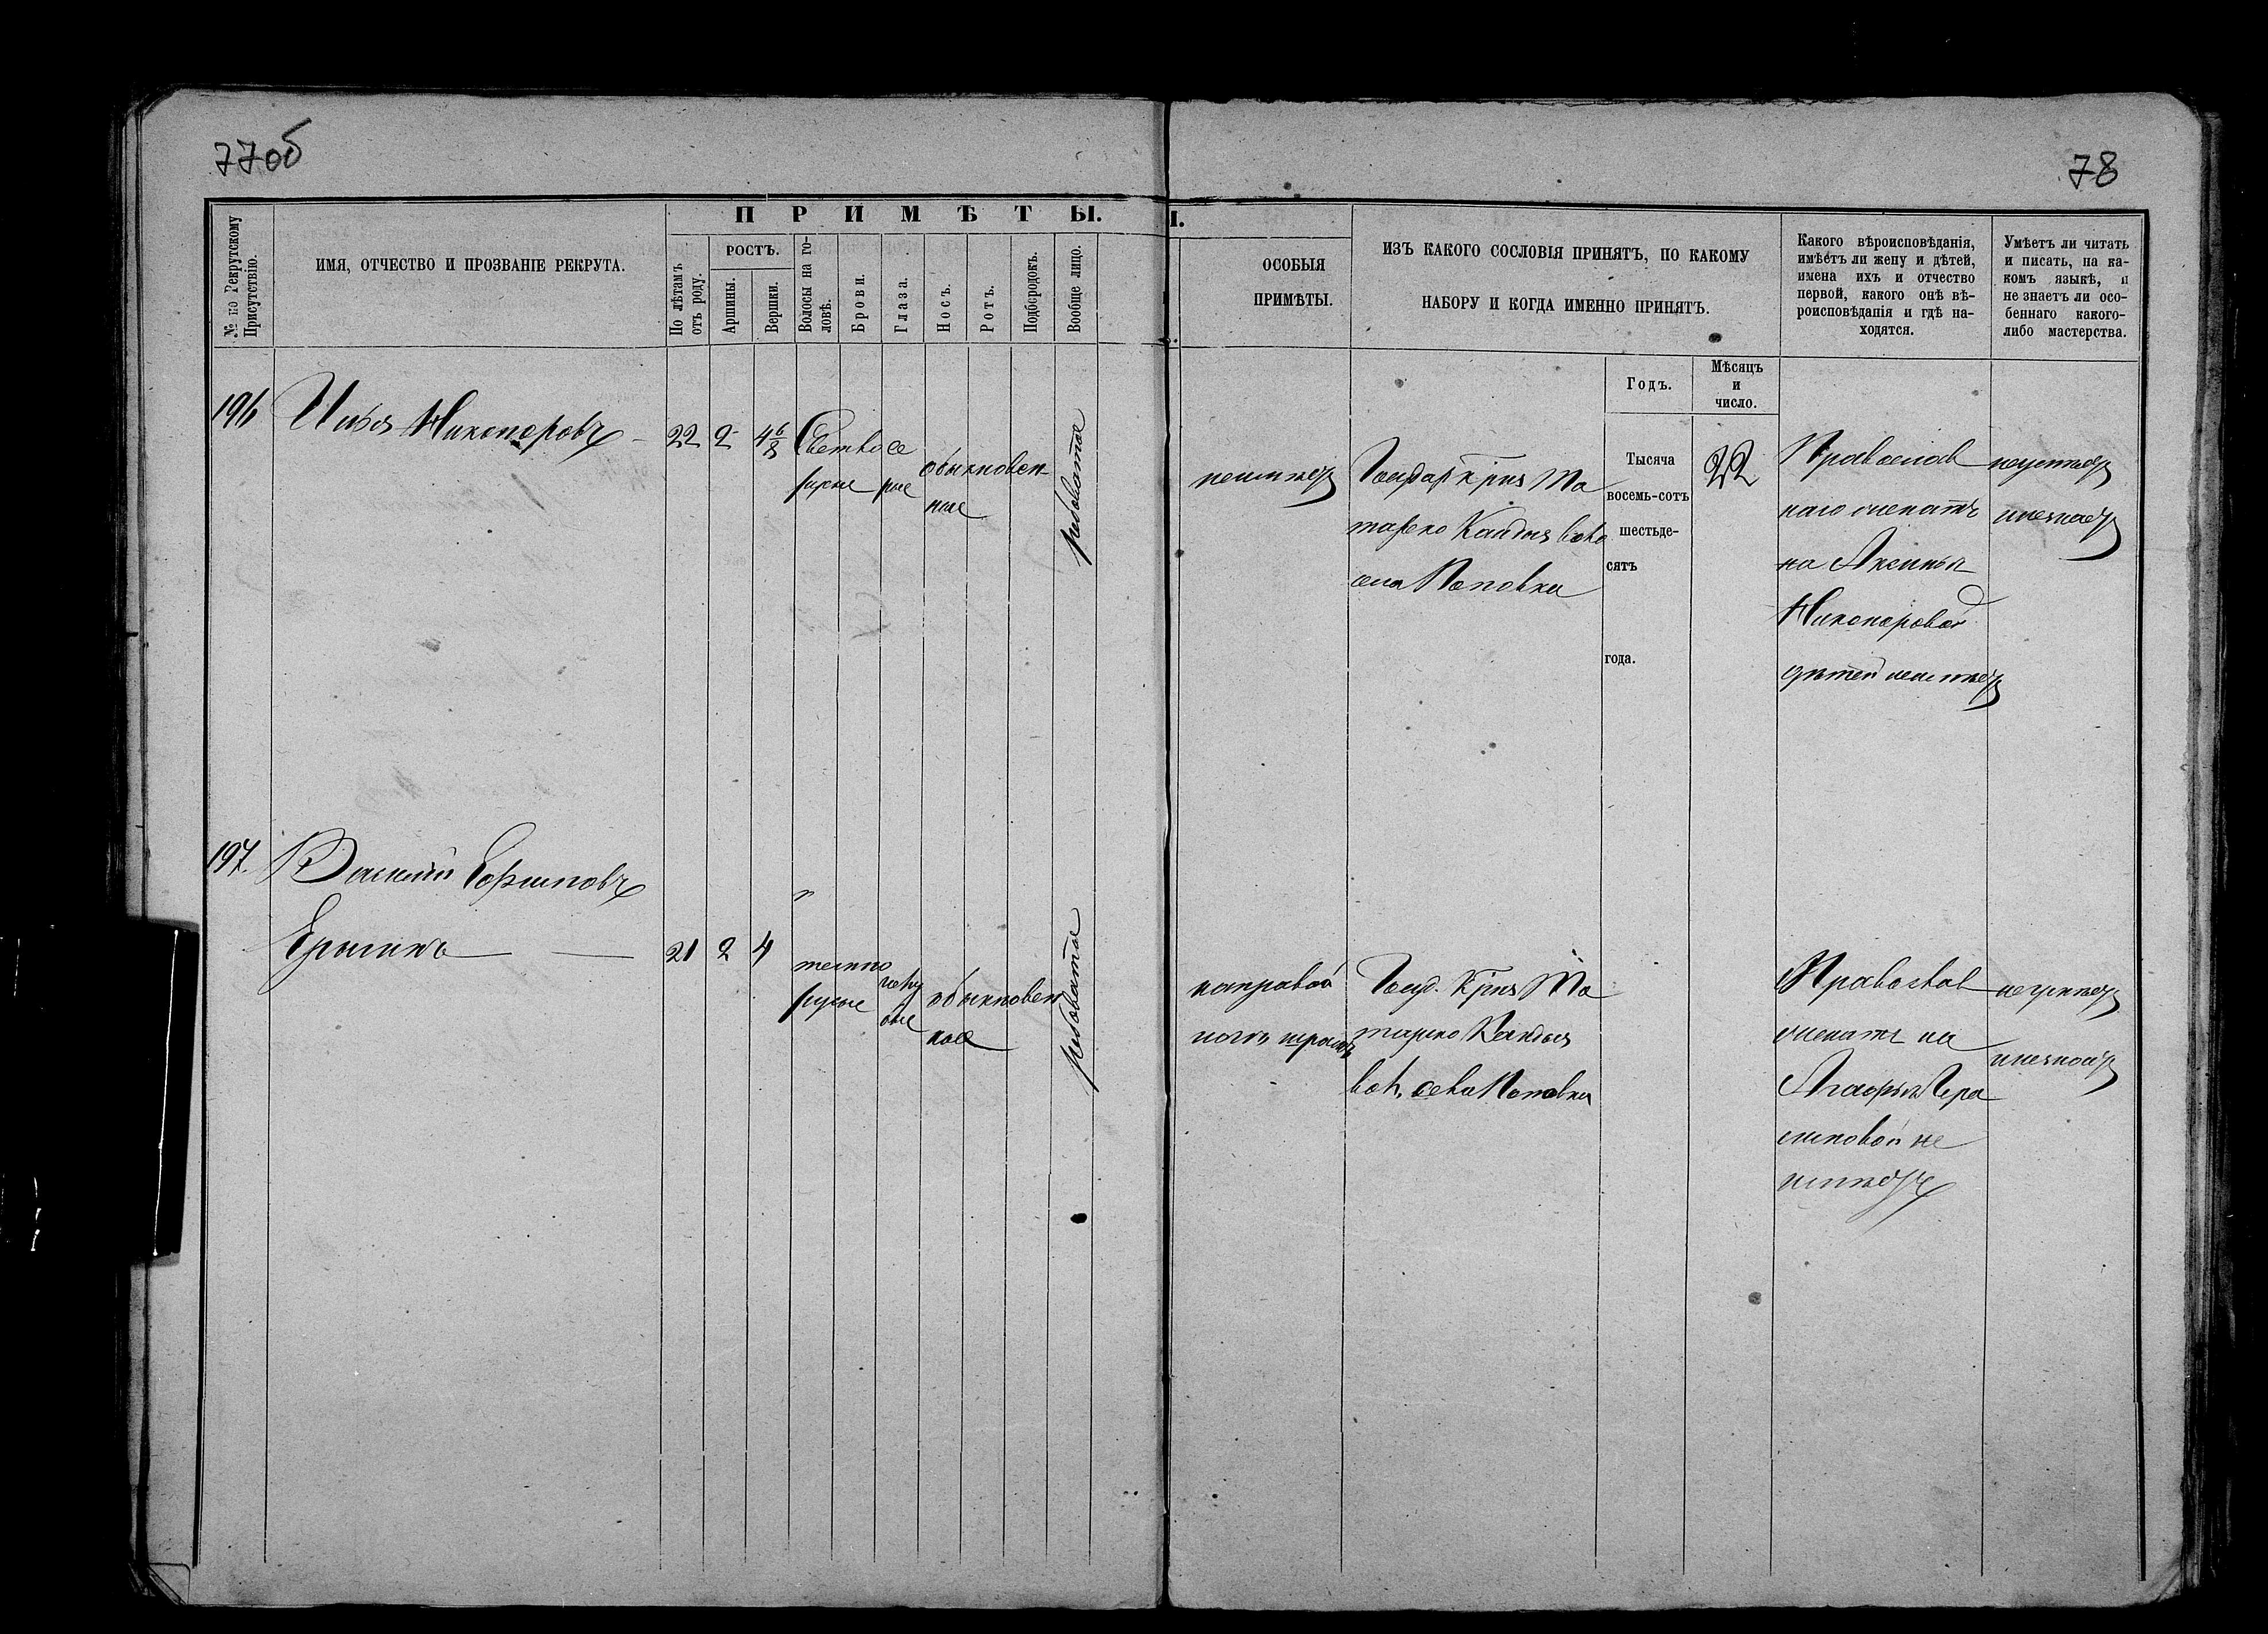 77об
78
П Р И М Ѣ Т Ы.
№ по Рекрутскому Присутствію.
ИМЯ, ОТЧЕСТВО И ПРОЗВАНІЕ РЕКРУТА.
По лѣтамъ отъ роду.
РОСТЪ.
Аршины.
Вершки.
Волосы на головѣ.
Брови.
Глаза.
Носъ.
Ротъ.
Подбородокъ.
Вообще лицо.
ОСОБЫЯ
ПРИМѢТЫ.
ИЗЪ КАКОГО СОСЛОВІЯ ПРИНЯТЪ, ПО КАКОМУ
НАБОРУ И КОГДА ИМЕННО ПРИНЯТЪ.
Годъ.
Мѣсяцъ
и
число.
Какого вѣроисповѣданія,
имѣетъ ли жену и дѣтей,
имена ихъ и отчество
первой, какого онѣ вѣ-
роисповѣданія и гдѣ на-
ходятся.
Умѣетъ ли читать
и писать, на ка-
комъ языкѣ, и
не знаетъ ли осо-
беннаго какого-
либо мастерства.
196
Илья Никоноровъ
22 2 4 6/8
Светло
русые
се
рые
обыкновен
ные
рябоватое
неимеетъ
Государ. Кр
та
тарско Кандыз воло
села Поповки
Тысяча
восемь-сотъ
шестьде-
сятъ
года.
22
Православ
наго женатъ
на Аксиньи
Никоноровой
детей неимеетъ
неумеетъ
и незнаетъ
197.
Василий
Ерыгинъ
21 2 4
темно
русые
голу
бые
обыкновен
ное
рябоватое
на правой
ноги шрамъ
Госуд. Кр
та
тарско Кандыз
вол. села Поповки
Православ
женатъ на
Агафьи Гера
симовой не
имеетъ
неумеетъ
и незнаетъ